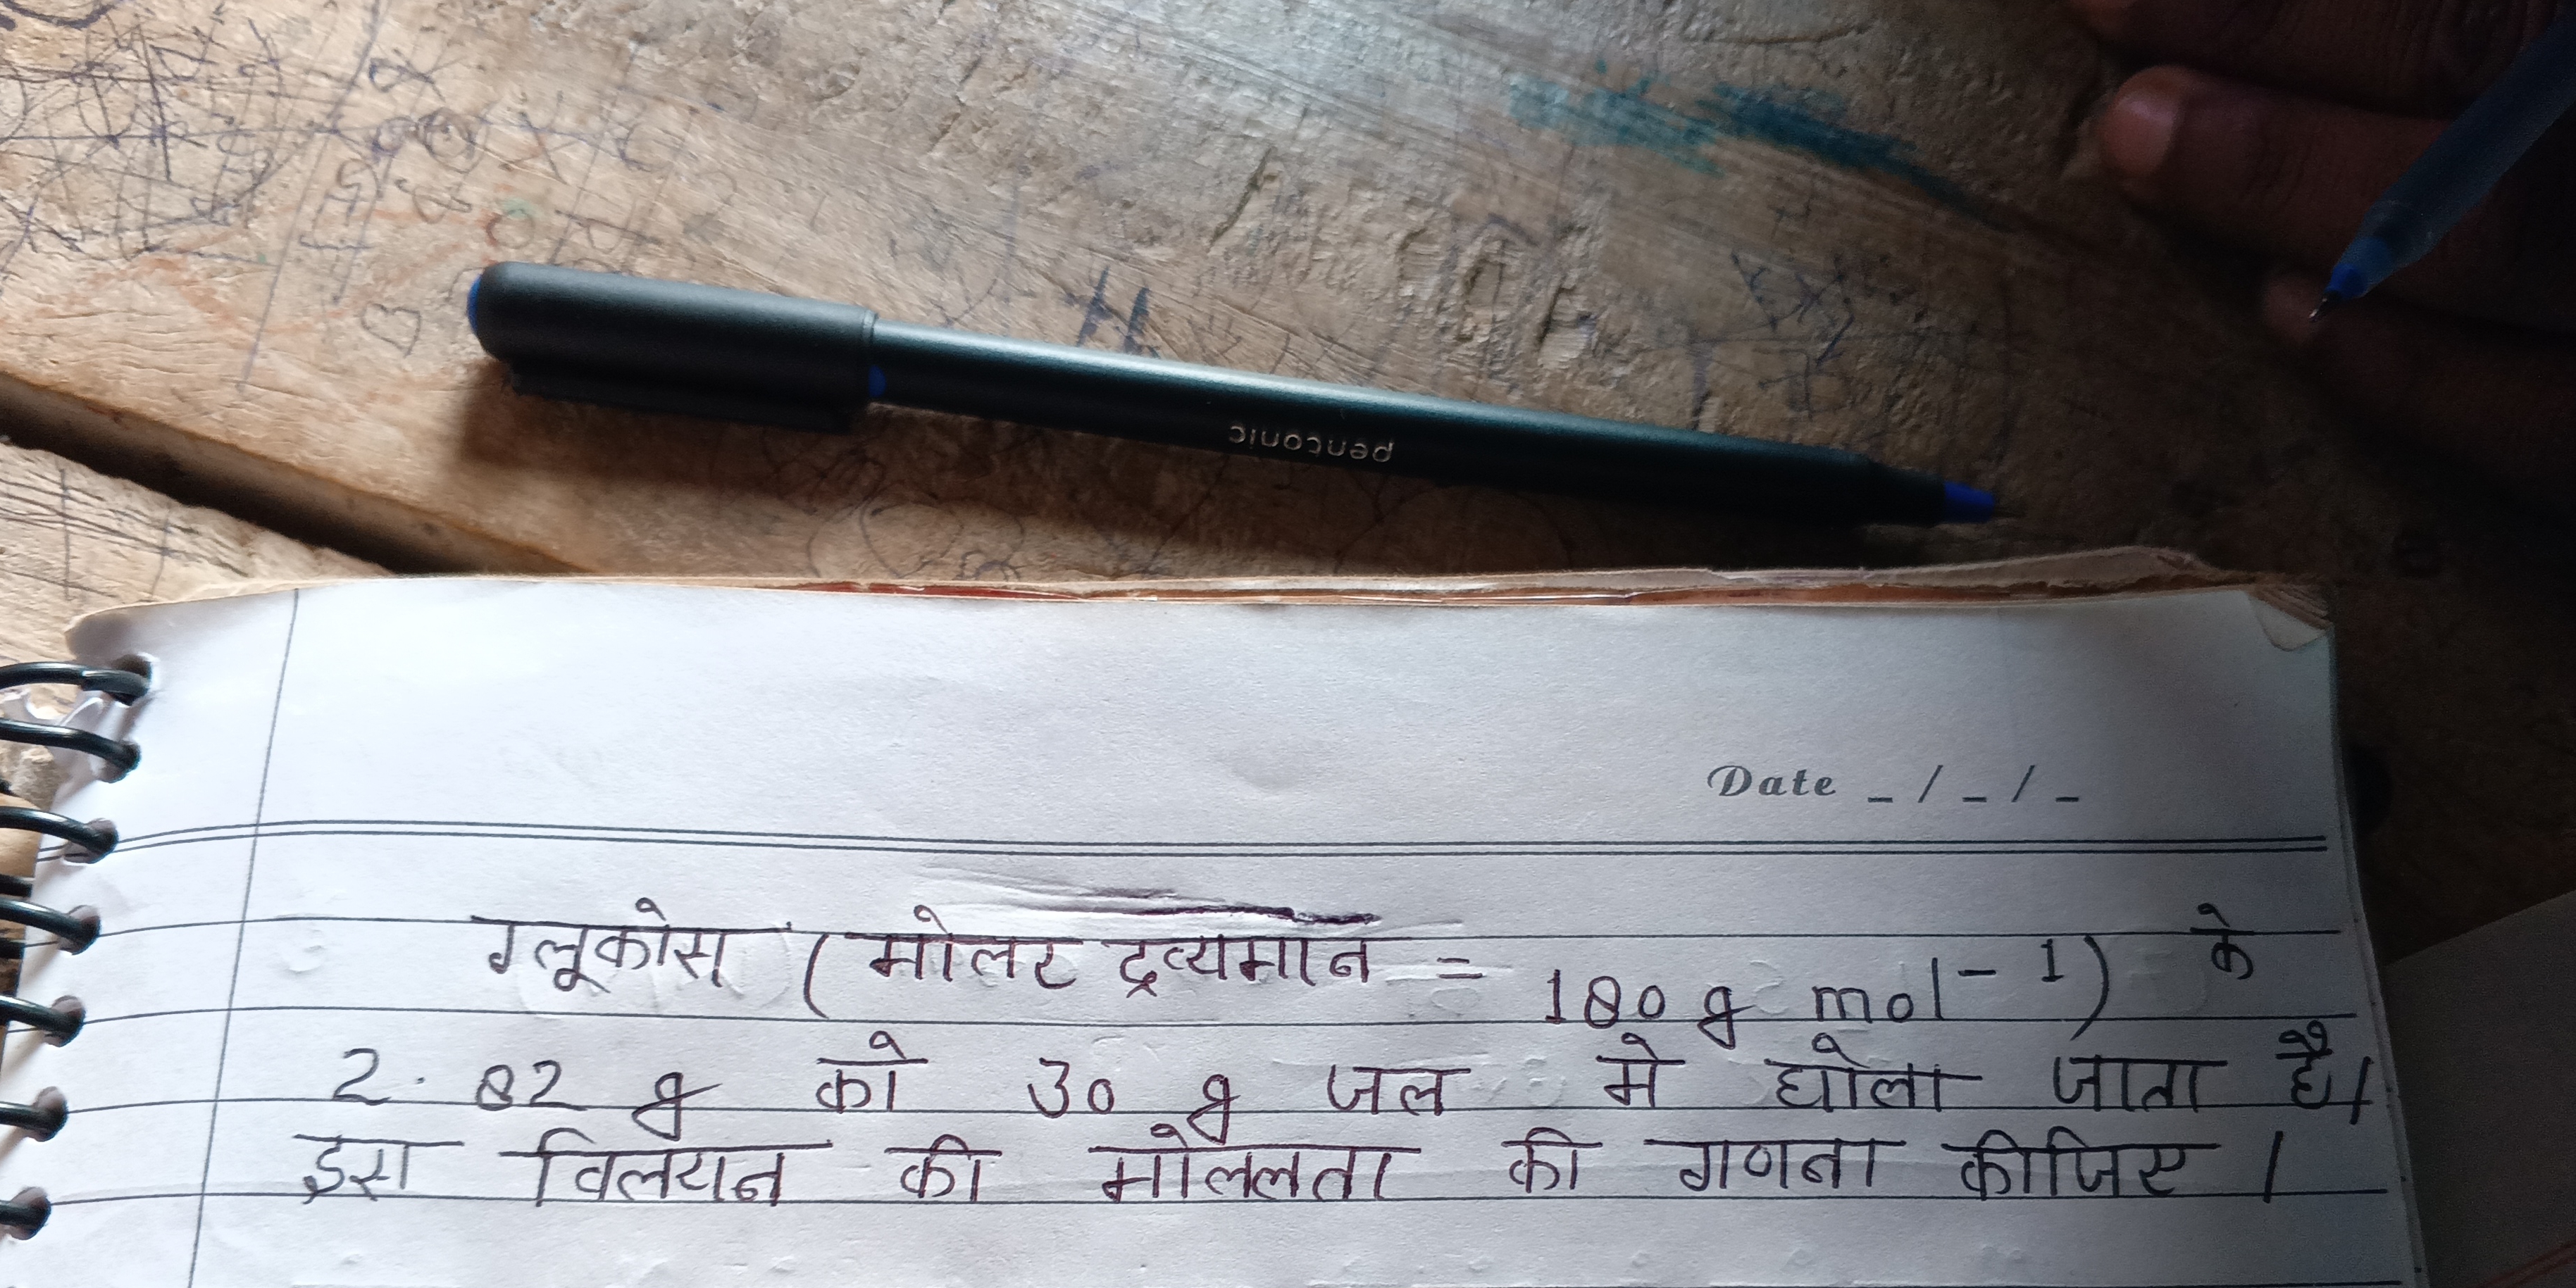 penconic
Date _ / _ / _
ग्लूकोस (मोलर द्रव्यमान = 180 g mol⁻¹) के
2.82 g को 30 g जल मे घोला जाता है।
इस विलयन की मोललता की गणना कीजिए।